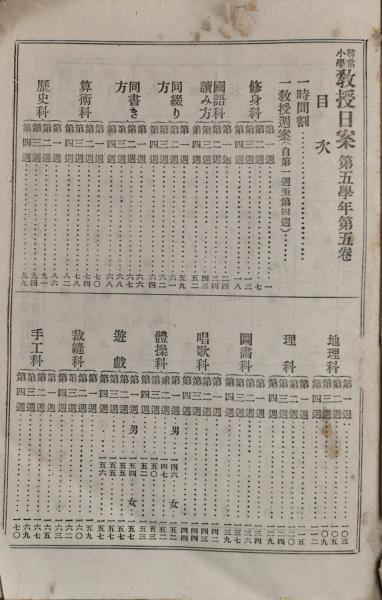 尋常小學 教授日案 第五學年第五卷
目次
一時間割
一教授週案(自第一週至第四週)
修身科
第一週 一
第二週 七
第三週
第四週 一八
國語科讀み方
第一週 二四
第二週 三四
第三週 四三
第四週 五二
同綴り方
第一週 五九
第二週 六一
第三週 六二
第四週 六四
同書き方
第一週 六六
第二週 六七
第三週 六八
第四週 六八
算術科
第一週 七〇
第二週 七四
第三週 七八
第四週 八二
歷史科
第一週 八六
第二週 九一
第三週 九四
第四週 九九
地理科
第一週 一〇三
第二週 一〇五
第三週 一〇九
第四週 一一二
理科
第一週
第二週 一二〇
第三週 一二四
第四週
圖畫科
第一週 一三四
第二週 一三六
第三週 一三七
第四週 一三九
唱歌科
第一週 一四一
第二週 一四二
第三週 一四四
第四週 一四四
體操科
第一週 男 一四六 女
第二週 一四七
第三週 一五〇
第四週 一五二
遊戲
第一週 男 一五四 女 一五七
第二週 一五五 一五七
第三週 一五五 一五七
第四週 一五六
裁縫科
第一週 一五九
第二週 一六〇
第三週 一六二
第四週
手工科
第一週
第二週 一六六
第三週 一六九
第四週 一七〇